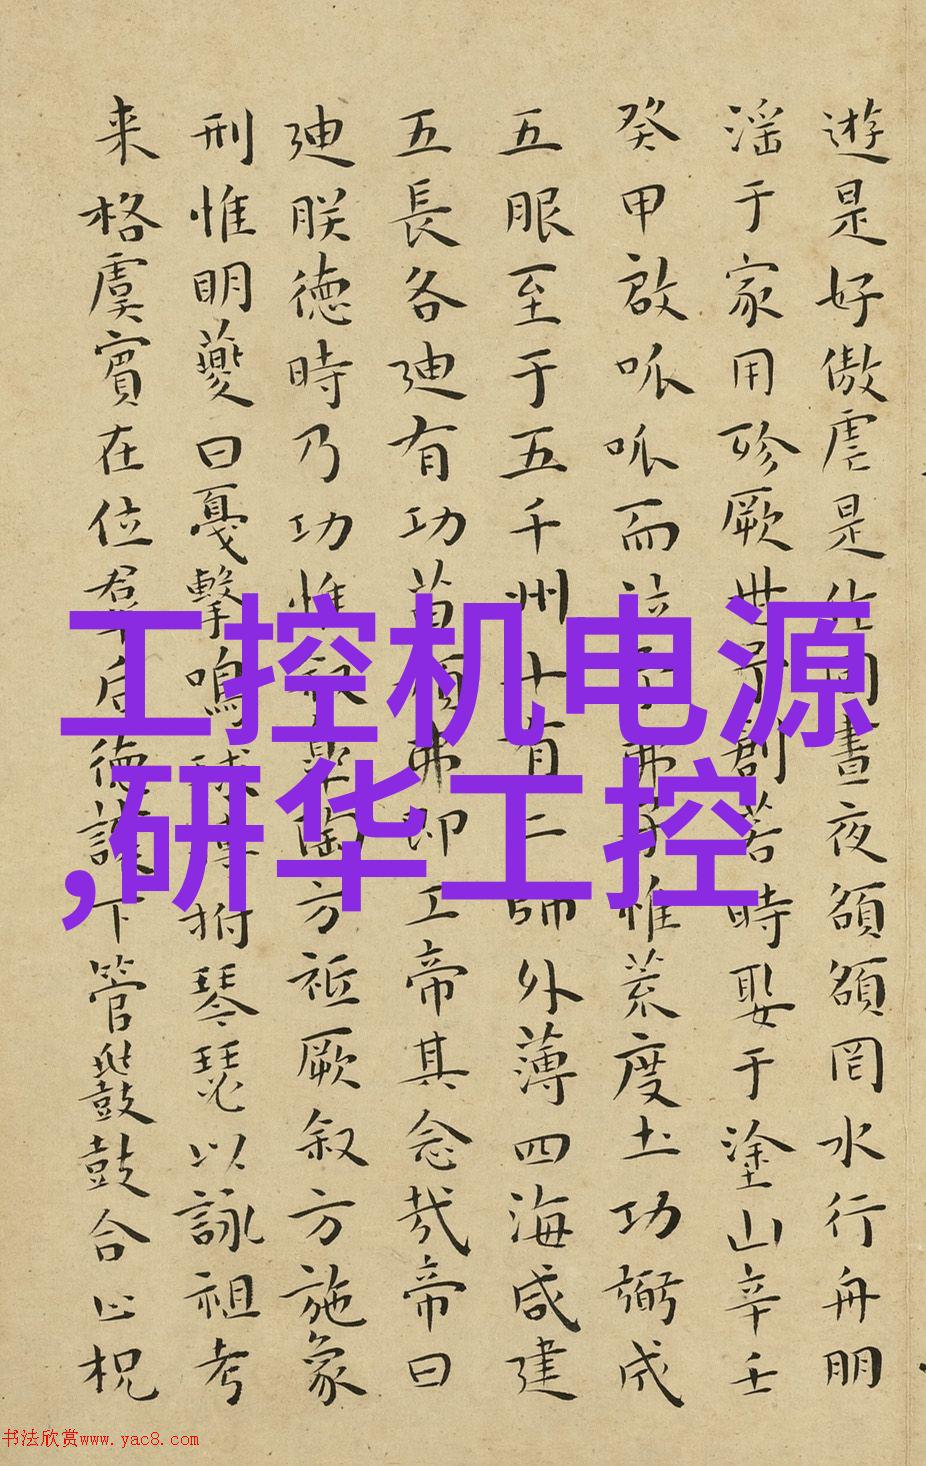 遊是好傲虐是作罔晝夜頟頟罔水行舟朋
滛于家用殄厥世予創若時娶于塗山辛壬
癸甲啟呱呱而弗子惟荒度土功弼成
五服至于五千州十有二師外薄四海咸建
五長各迪有功苗頑弗即工帝其念哉帝曰
迪朕德時乃功惟叙皐陶方祗厥叙方施象
刑惟明夔曰戛擊鳴球搏拊琴瑟以詠祖考
来格虞賓在位羣后德讓下管鼗鼓合止柷
工控机电源
,研华工控
书法欣赏www.yac8.com